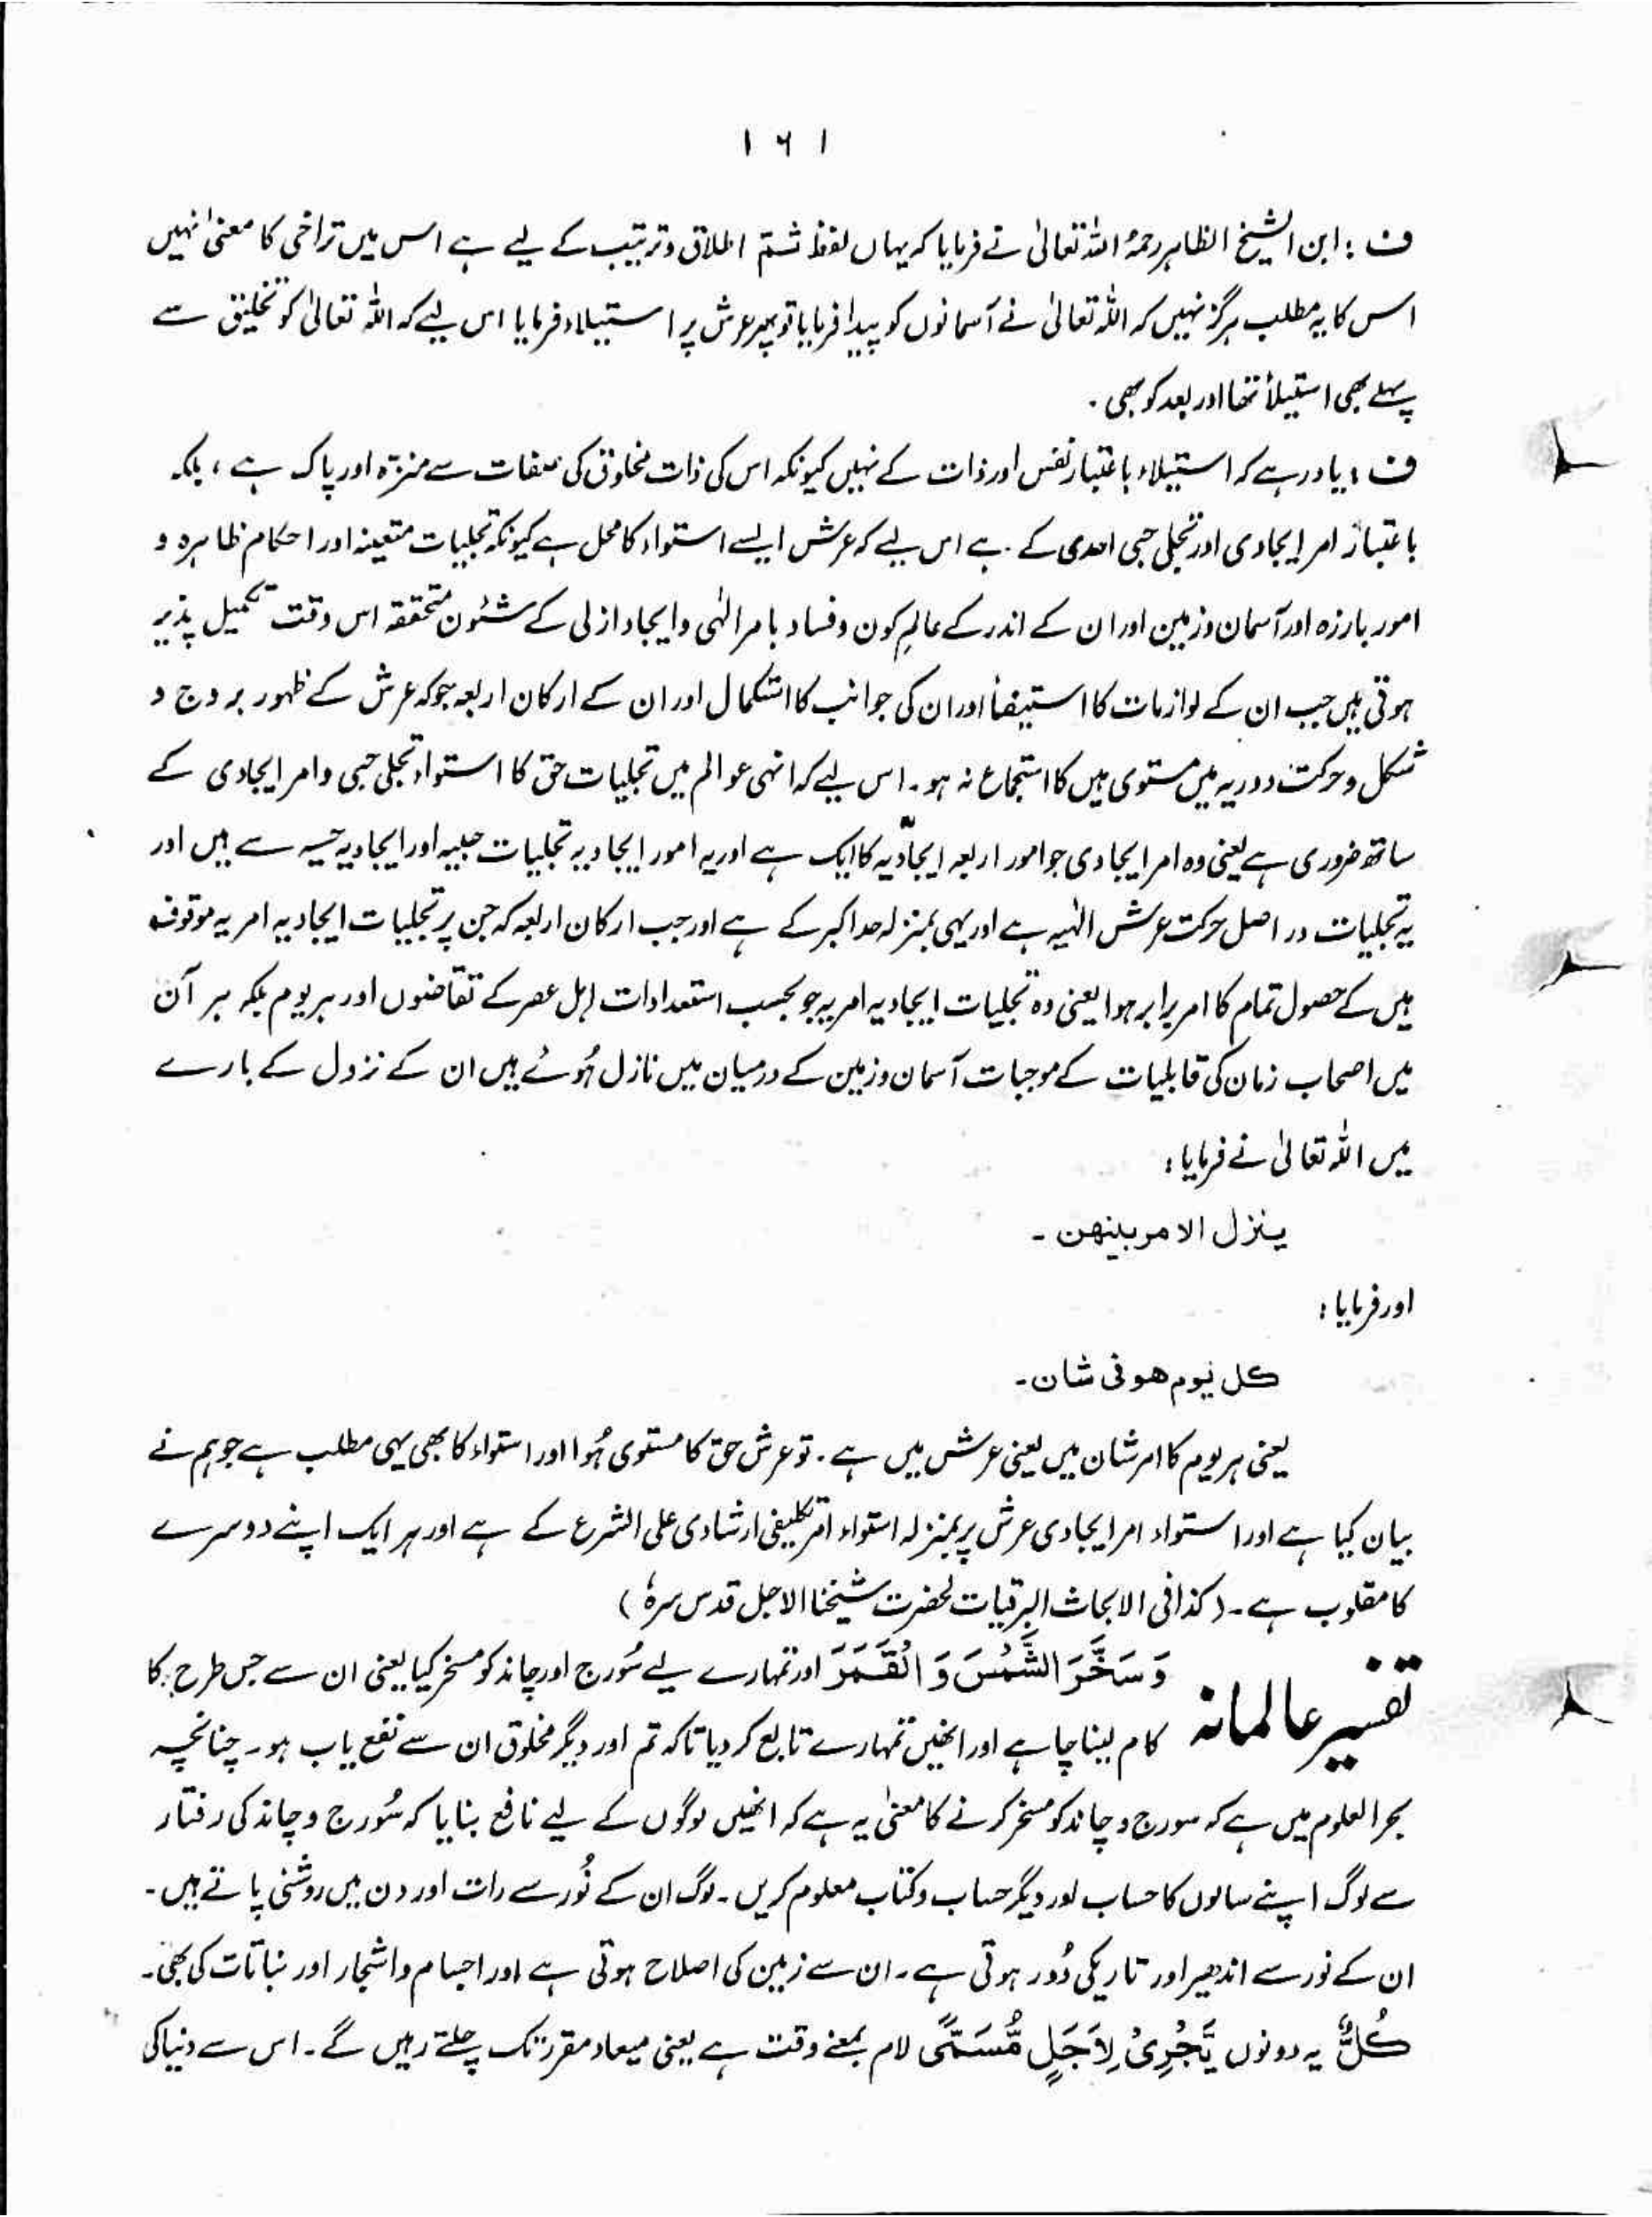 ۱۶۱
ف : ابن الشیخ الظاہر رحمہُ اللہ تعالیٰ نے فرمایا کہ یہاں لفظ ثمّ اطلاق و ترتیب کے لیے ہے اس میں تراخی کا معنیٰ نہیں
اس کا یہ مطلب ہرگز نہیں کہ اللہ تعالیٰ نے آسمانوں کو پیدا فرمایا تو پھر عرش پر استیلاء فرمایا اس لیے کہ اللہ تعالیٰ کو تخلیق سے
پہلے بھی استیلأ تھا اور بعد کو بھی .
ف : یاد رہے کہ استیلاء باعتبار نفس اور ذات کے نہیں کیونکہ اس کی ذات مخلوق کی صفات سے منزہ اور پاک ہے ، بلکہ
باعتبار امر ایجادی اور تجلی حبی احدی کے ہے اس لیے کہ عرش ایسے استواء کا محل ہے کیونکہ تجلیات متعینہ اور احکام ظاہرہ و
امور بارزہ اور آسمان و زمین اور ان کے اندر کے عالمِ کون و فساد بامر الٰہی و ایجاد ازلی کے شئون متحققہ اس وقت تکمیل پذیر
ہوتی ہیں جب ان کے لوازمات کا استیفأ اور ان کی جوانب کا استکمال اور ان کے ارکان اربعہ جو کہ عرش کے ظہور بر وج و
شکل و حرکت دوریہ میں مستوی ہیں کا استجماع نہ ہو ۔ اس لیے کہ انہی عوالم میں تجلیات حق کا استواء تجلی حبی و امر ایجادی کے
ساتھ ضروری ہے یعنی وہ امر ایجادی جو امور اربعہ ایجادیہ کا ایک ہے اور یہ امور ایجادیہ تجلیات حبیہ اور ایجادیہ حسیہ سے ہیں اور
یہ تجلیات در اصل حرکت عرش الٰہیہ ہے اور یہی بمنزلہ حد اکبر کے ہے اور جب ارکان اربعہ کہ جن پر تجلیات ایجادیہ امریہ موقوفہ
ہیں کے حصول تمام کا امر برابر ہوا یعنی وہ تجلیات ایجادیہ امریہ جو بحسب استعدادات اہل عصر کے تقاضوں اور ہر یوم بلکہ ہر آن
میں اصحاب زمان کی قابلیات کے موجبات آسمان و زمین کے درمیان میں نازل ہُوئے ہیں ان کے نزول کے بارے
میں اللہ تعالیٰ نے فرمایا :
ینزل الامر بینھن ۔
اور فرمایا :
کل یوم ھو فی شان ۔
یعنی ہر یوم کا امر شان میں یعنی عرش میں ہے . تو عرش حق کا مستوی ہُوا اور استواء کا بھی یہی مطلب ہے جو ہم نے
بیان کیا ہے اور استواء امر ایجادی عرش پر بمنزلہ استواء امر تکلیفی ارشادی علی الشرع کے ہے اور ہر ایک اپنے دوسرے
کا مقلوب ہے ۔ (کذا فی الابحاث البرقیات لحضرت شیخنا الاجل قدس سرہٗ )
تفسیر عالمانہ وَسَخَّرَ الشَّمْسَ وَ الْقَمَرَ اور تمہارے لیے سُورج اور چاند کو مسخر کیا یعنی ان سے جس طرح کا
کام لینا چاہے اور انھیں تمہارے تابع کر دیا تاکہ تم اور دیگر مخلوق ان سے نفع یاب ہو ۔ چنانچہ
بحر العلوم میں ہے کہ سورج و چاند کو مسخر کرنے کا معنیٰ یہ ہے کہ انھیں لوگوں کے لیے نافع بنایا کہ سُورج و چاند کی رفتار
سے لوگ اپنے سالوں کا حساب اور دیگر حساب و کتاب معلوم کریں ۔ لوگ ان کے نُور سے رات اور دن میں روشنی پاتے ہیں ۔
ان کے نور سے اندھیر اور تاریکی دُور ہوتی ہے ۔ ان سے زمین کی اصلاح ہوتی ہے اور اجسام و اشجار اور نباتات کی بھی ۔
کُلٌّ یہ دونوں یَّجْرِیْ لِاَجَلٍ مُّسَمًّی لام بمعنے وقت ہے یعنی میعاد مقرر تک چلتے رہیں گے ۔ اس سے دنیا کی